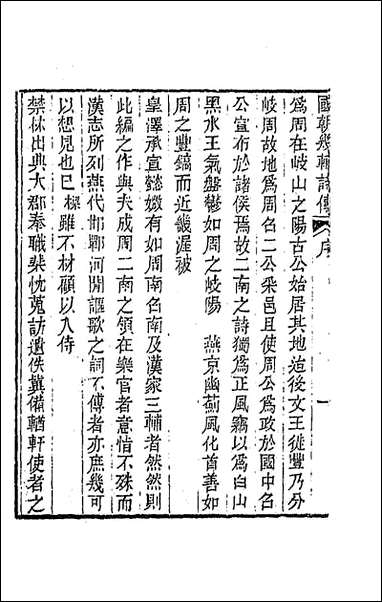 國朝畿輔詩傳 序 一
為周在岐山之陽古公始居其地迨後文王徙豐乃分
岐周故地為周名二公采邑且使周公為政於國中名
公宣布於諸侯焉故二南之詩獨為正風竊以為白山
黑水王氣盤鬱如周之岐陽 燕京幽薊風化首善如
周之豐鎬而近畿渥被
皇澤承宣懿媺有如周南名南及漢家三輔者然然則
此編之作與夫成周二南之領在樂官者意惜不殊而
漢志所列燕代邯鄲河間謳歌之詞不傳者亦庶幾可
以想見也已樑雖不材顧以入侍
禁林出典大郡奉職柴忱蒐訪遺佚冀備輶軒使者之